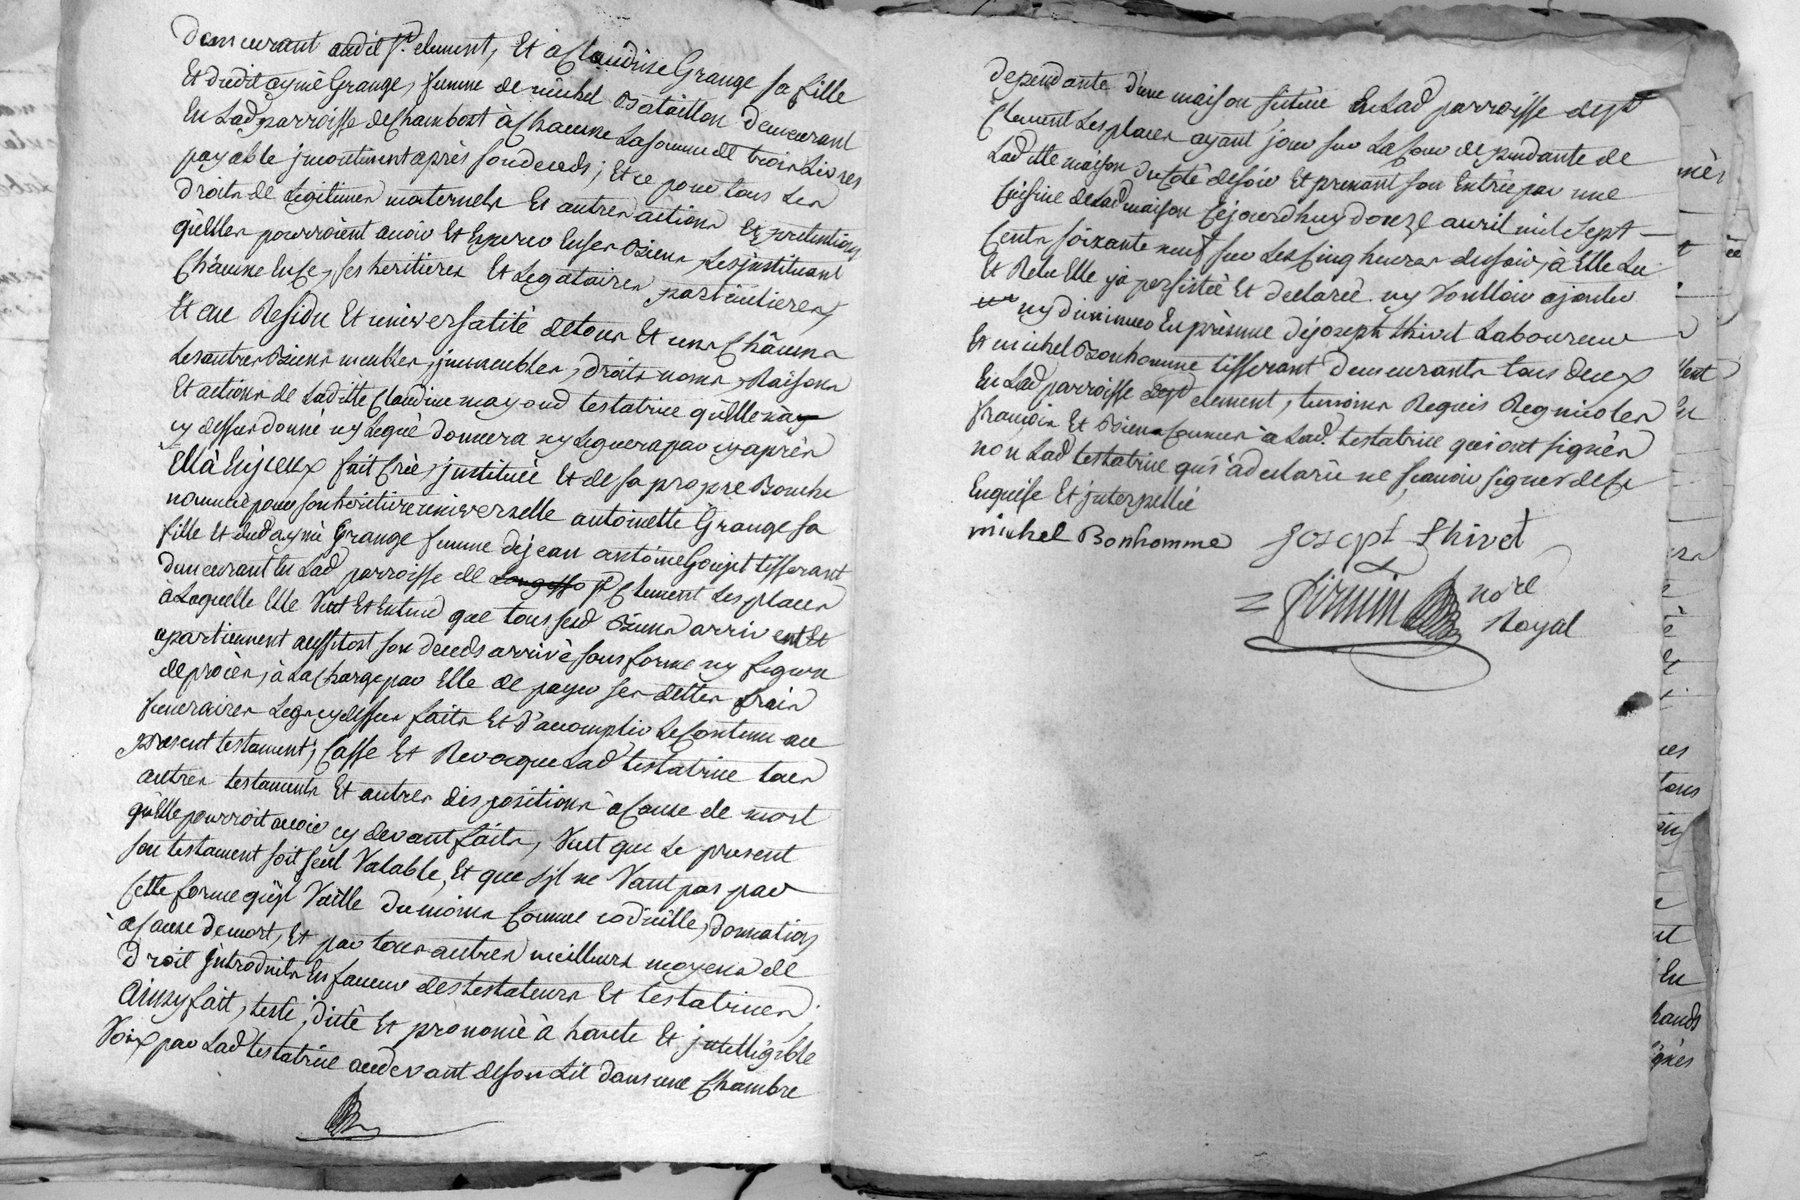 demeurant audit St. clement, Et à Claudine Grange sa fille
Et dudit aymé Grange, femme de michel Bataillon demeurant
En Lad parroisse de Chambost à Chacune La somme de trois Livres
payable jncontinent après son deceds; Et ce pour tous Les
droits de Legitimes maternels Et autres actions Et pretentions
qu'elles pourroient avoir Et Esperer En ses Biens, Les jnstituant
Chacune En ce, ses heritieres Et Legataires particulieres
Et au Residu Et universalité de tous Et uns Chacuns
Les autres Biens meubles, jmmeubles, droits noms, Raisons
Et actions de Laditte Claudine mayoud testatrice qu'elle n'a
cy dessus donné ny Legué donnera ny Leguera par cy après
Elle à Eüe fait Crée, jnstituée Et de sa propre Bouche
nommée pour son heritiere universelle antoinette Grange sa
fille Et dud aymé Grange femme de jean antoine Goujet tisserant
demeurant En Lad parroisse de Longesso St Clement Les places
à Laquelle Elle Veut Et Entend que tous sesd Biens arrivent Et
apartiennent aussitost son deceds arrivé sans forme ny figure
de procès, à La Charge par Elle de payer ses dettes frais
funeraires Legs cy dessus faits Et d'accomplir Le Contenu au
present testament; Casse Et Revocque Lad testatrice tous
autres testaments Et autres dispositions à Cause de mort
qu'elle pourroit avoir cy devant faits, Veut que Le present
son testament soit seul Valable, Et que s'jl ne Vaut pas par
Cette forme qu'jl Vaille du moins Comme codicille, donnation
à Cause de mort, Et par tous autres meilleurs moyens de
Droit jntroduits En faveur des testateurs Et testatrices
Ainsy fait, testé, dicté Et prononcé à haute Et jntelligible
Voix par Lad testatrice au devant de son Lit dans une Chambre
dependante d'une maison située En Lad parroisse de St
Clement Les places ayant jour sur La Cour dependante de
Laditte maison du Coté de soir Et prenant son Entrée par une
Cuisine de Lad maison Cejourd'huy douze avril mil Sept
Cents soixante neuf sur Les Cinq heures du soir, à Elle Lu
Et Relu Elle y a persistée Et declarée ny Voulloir ajouter
ny diminuer En présence de joseph thivet Laboureur
Et michel Bonhomme tisserant demeurants tous deux
En Lad parroisse de St clement, temoins Requis Regnicoles
francois Et Biens Connus à Lad. testatrice qui ont signés
non Lad testatrice qui à declarée ne sçavoir signer de Ce
Enquise Et jnterpellée
michel Bonhomme Josept thivet
firmin nore
Royal